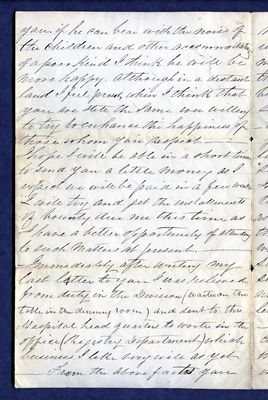 you if he can bear with the noise of
the children and other accommodation
of a poor kind I think he will be
more happy. Although in a distant
land I feel proud when I think that
you are still the same ever willing
to try to enhance the happiness of
those whom you respect
I hope I will be able in a short time
to send you a little money as I
expect we will be paid in a few weeks
I will try and get the installments
of bounty due me this time as
I have a better opportunity of attending
to such Matters at present.
Immediately after writing my
last letter to you I was relieved
from duty in the Division (waiter on the
table in the dinning room) and sent to the
Hospital head quarter to write in the
office (Registry Department) which
business I like very well as yet
From the above facts you